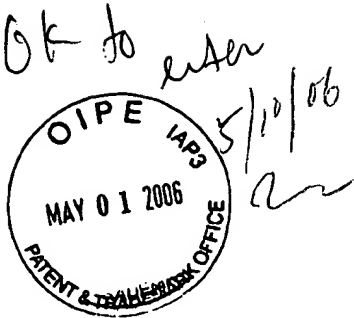 Ok to enter
5/10/06
OIPE IAP3
MAY 01 2006
PATENT & TRADEMARK OFFICE